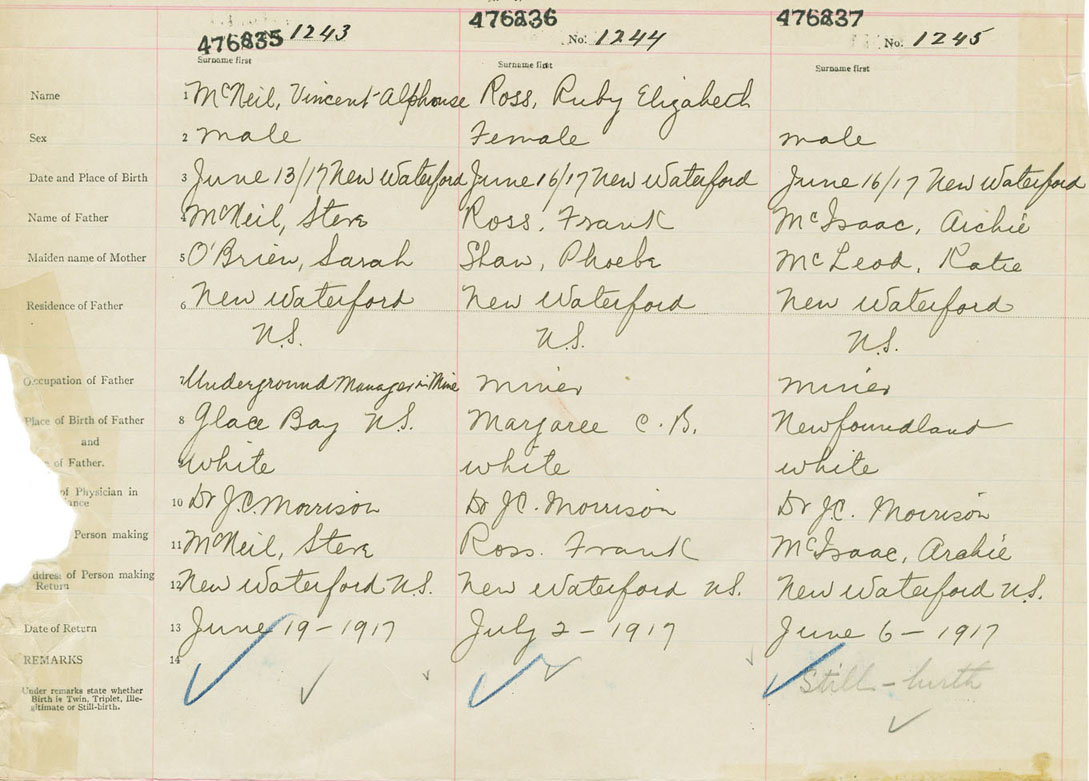 476835 1243 476836 No. 1244 476837 No. 1245
Surname first Surname first Surname first
Name 1 McNeil, Vincent-Alphonse Ross, Ruby Elizabeth
Sex 2 male Female male
Date and Place of Birth 3 June 13/17 New Waterford June 16/17 New Waterford June 16/17 New Waterford
Name of Father 4 McNeil, Steve Ross, Frank McIsaac, Archie
Maiden name of Mother 5 O'Brien, Sarah Shaw, Phoebe McLeod, Katie
Residence of Father 6 New Waterford New Waterford New Waterford
N.S. N.S. N.S.
Occupation of Father 7 Underground Manager in Mine miner miner
Place of Birth of Father 8 Glace Bay N.S. Margaree C.B. Newfoundland
and
of Father. 9 white white white
of Physician in
ance 10 Dr J.C. Morrison Dr J.C. Morrison Dr J.C. Morrison
Person making 11 McNeil, Steve Ross. Frank McIsaac, Archie
ddress of Person making 12 New Waterford N.S. New Waterford N.S. New Waterford N.S.
Return
Date of Return 13 June 19-1917 July 2-1917 June 6-1917
REMARKS 14
Still-birth
Under remarks state whether
Birth is Twin, Triplet, Ille-
gitimate or Still-birth.